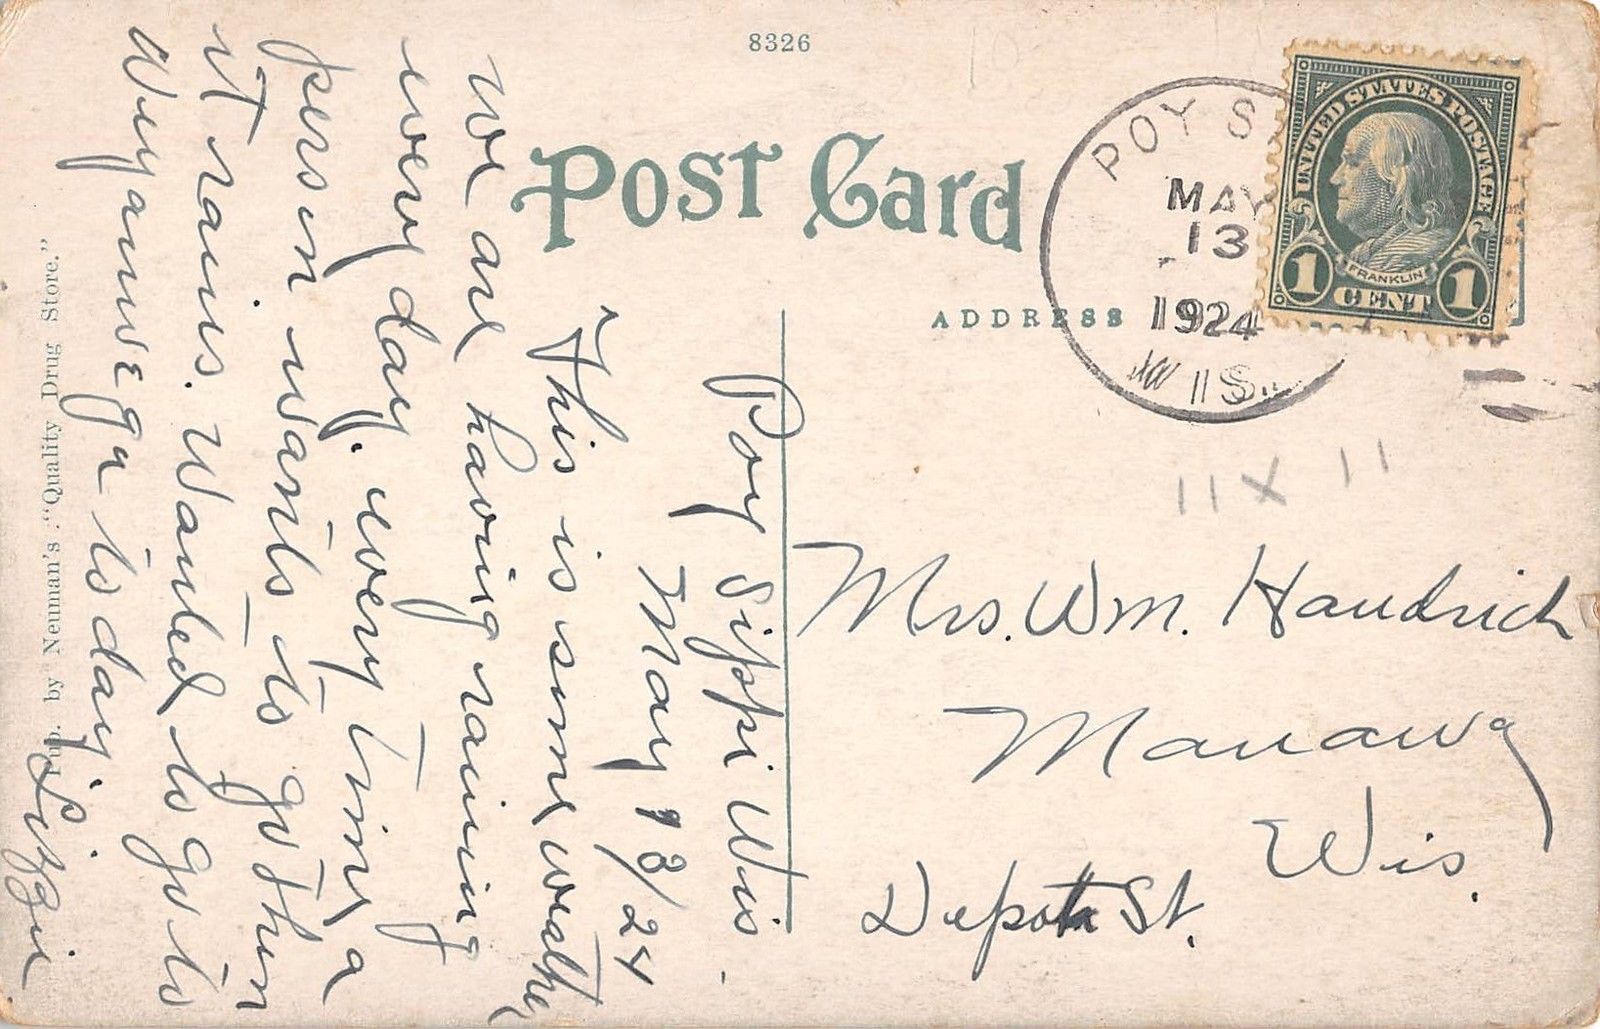 8326
Post Card
ADDRESS
POY S
MAY
13
1924
WIS.
UNITED STATES POSTAGE
FRANKLIN
1 CENT 1
11 X 11
Mrs. Wm. Handrich
Manawa
Wis.
Depot St.
Poy Sippi Wis.
May 13/24
This is some weather
we are having raining
every day. every time a
person wants to go then
it rains. Wanted to go to
Weyauwega to day.
Lizzie
Pub. by Neuman's "Quality Drug Store."